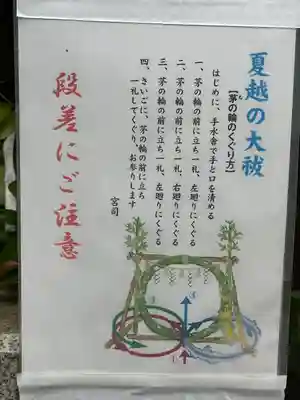 夏越の大祓
【茅の輪のくぐり方】
はじめに、手水舎で手と口を清める
一、茅の輪の前に立ち一礼、左廻りにくぐる
二、茅の輪の前に立ち一礼、右廻りにくぐる
三、茅の輪の前に立ち一礼、左廻りにくぐる
四、さいごに、茅の輪の前に立ち
一礼してくぐり、お参りします
宮司
段差にご注意